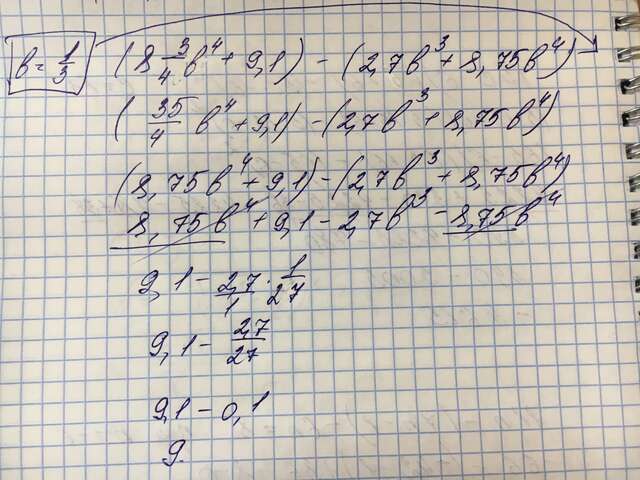 b = 1/3
(8 3/4 b⁴ + 9,1) - (2,7b³ + 8,75b⁴)
(35/4 b⁴ + 9,1) - (2,7b³ + 8,75b⁴)
(8,75b⁴ + 9,1) - (2,7b³ + 8,75b⁴)
8,75b⁴ + 9,1 - 2,7b³ - 8,75b⁴
9,1 - 2,7/1 · 1/27
9,1 - 2,7/27
9,1 - 0,1
9